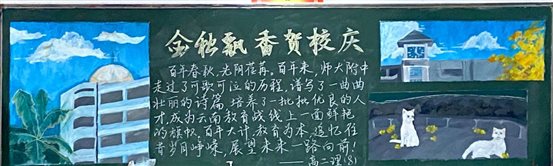 金秋飘香贺校庆
百年春秋,光阴荏苒。百年来,师大附中
走过了可歌可泣的历程,谱写了一曲曲
壮丽的诗篇,培养了一批批优良的人
才,成为云南教育战线上一面鲜艳
的旗帜。百年大计,教育为本,追忆往
昔岁月峥嵘,展望未来一路向前!
——高二理(8)